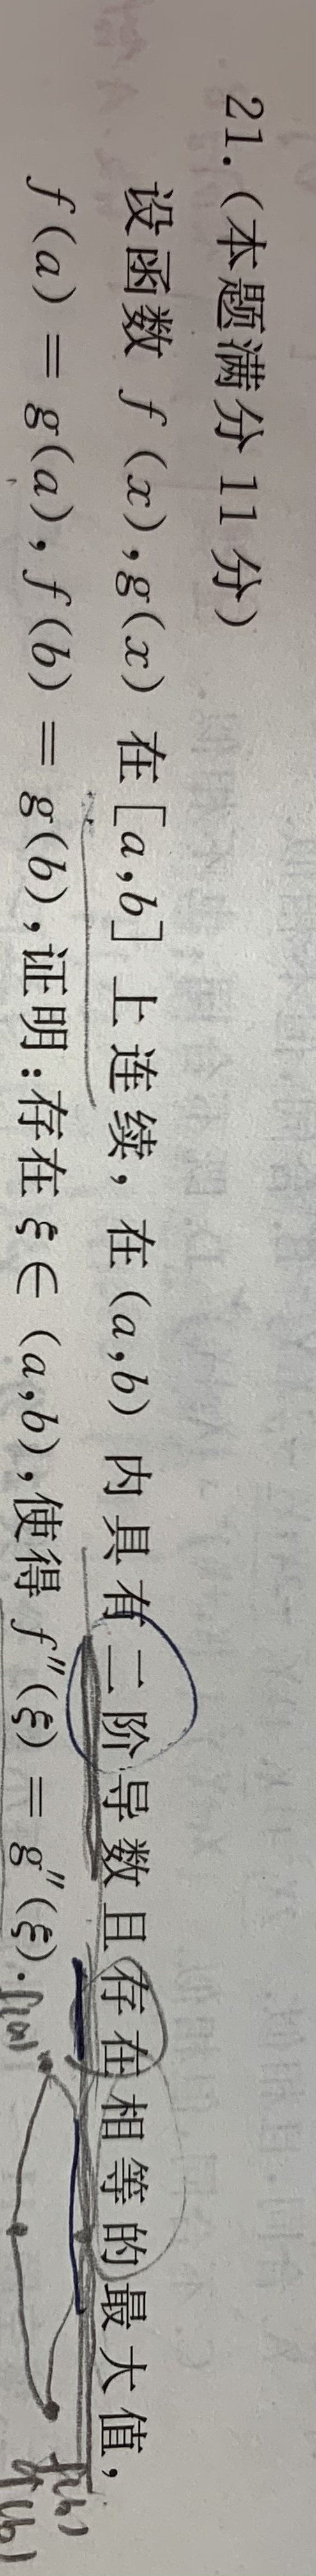 21.(本题满分11分)
设函数 f(x),g(x) 在[a,b]上连续,在(a,b)内具有二阶导数且存在相等的最大值,
f(a)=g(a),f(b)=g(b),证明:存在ξ∈(a,b),使得 f″(ξ)=g″(ξ).
f(a)
f(b)